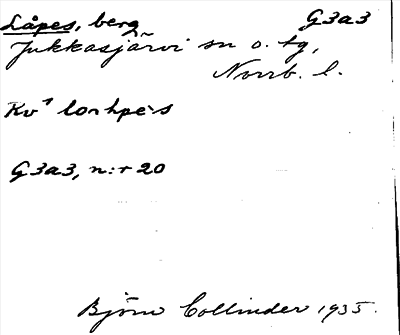 Låpes, berg G3a3
Jukkasjärvi sn o. tg,
Norrb. l.
Kv¹ lorhpe·s
G3a3, n:r 20
Björn Collinder 1935.